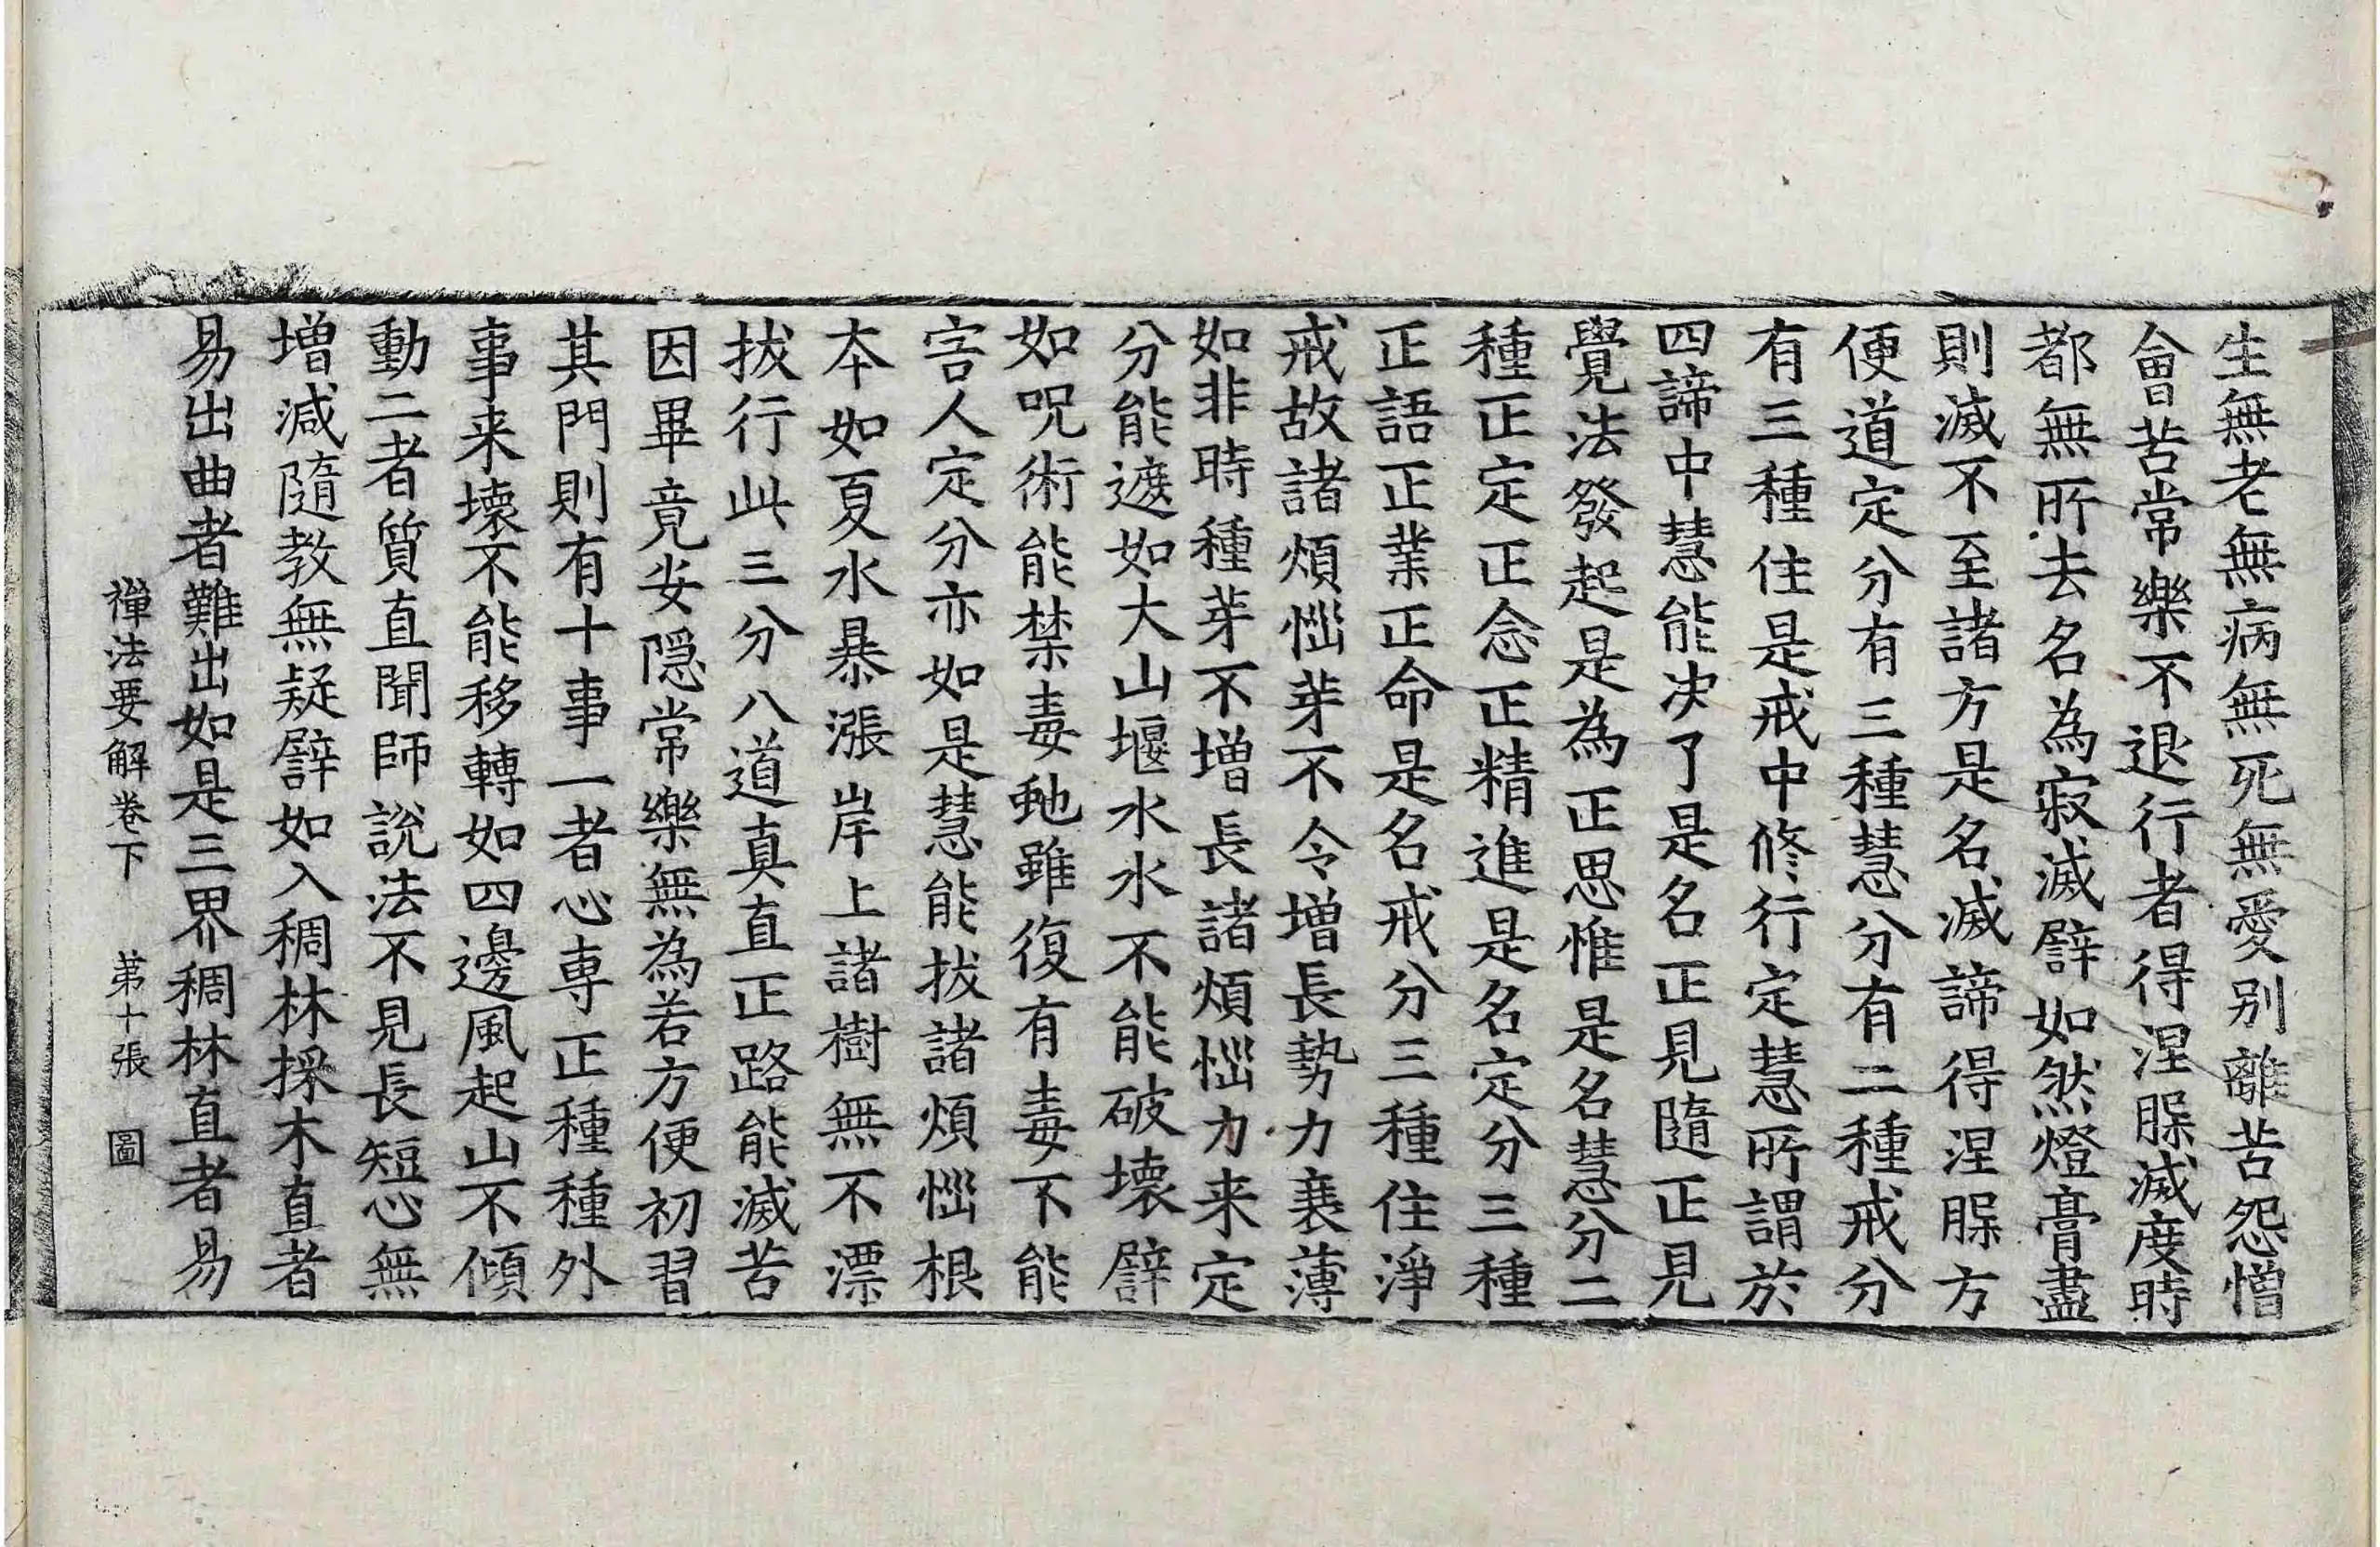 生無老無病無死無愛别離苦怨憎
會苦常樂不退行者得涅槃滅度時
都無所去名為寂滅譬如然燈膏盡
則滅不至諸方是名滅諦得涅槃方
便道定分有三種慧分有二種戒分
有三種住是戒中修行定慧所謂於
四諦中慧能决了是名正見隨正見
覺法發起是為正思惟是名慧分二
種正定正念正精進是名定分三種
正語正業正命是名戒分三種住淨
戒故諸煩惱芽不令增長勢力衰薄
如非時種芽不增長諸煩惱力来定
分能遮如大山堰水水不能破壞譬
如呪術能禁毒虵雖復有毒不能
害人定分亦如是慧能拔諸煩惱根
本如夏水暴漲岸上諸樹無不漂
拔行此三分八道真直正路能滅苦
因畢竟安隱常樂無為若方便初習
其門則有十事一者心専正種種外
事来壞不能移轉如四邊風起山不傾
動二者質直聞師說法不見長短心無
增減隨教無疑譬如入稠林採木直者
易出曲者難出如是三界稠林直者易
禪法要解卷下　第十張　圖